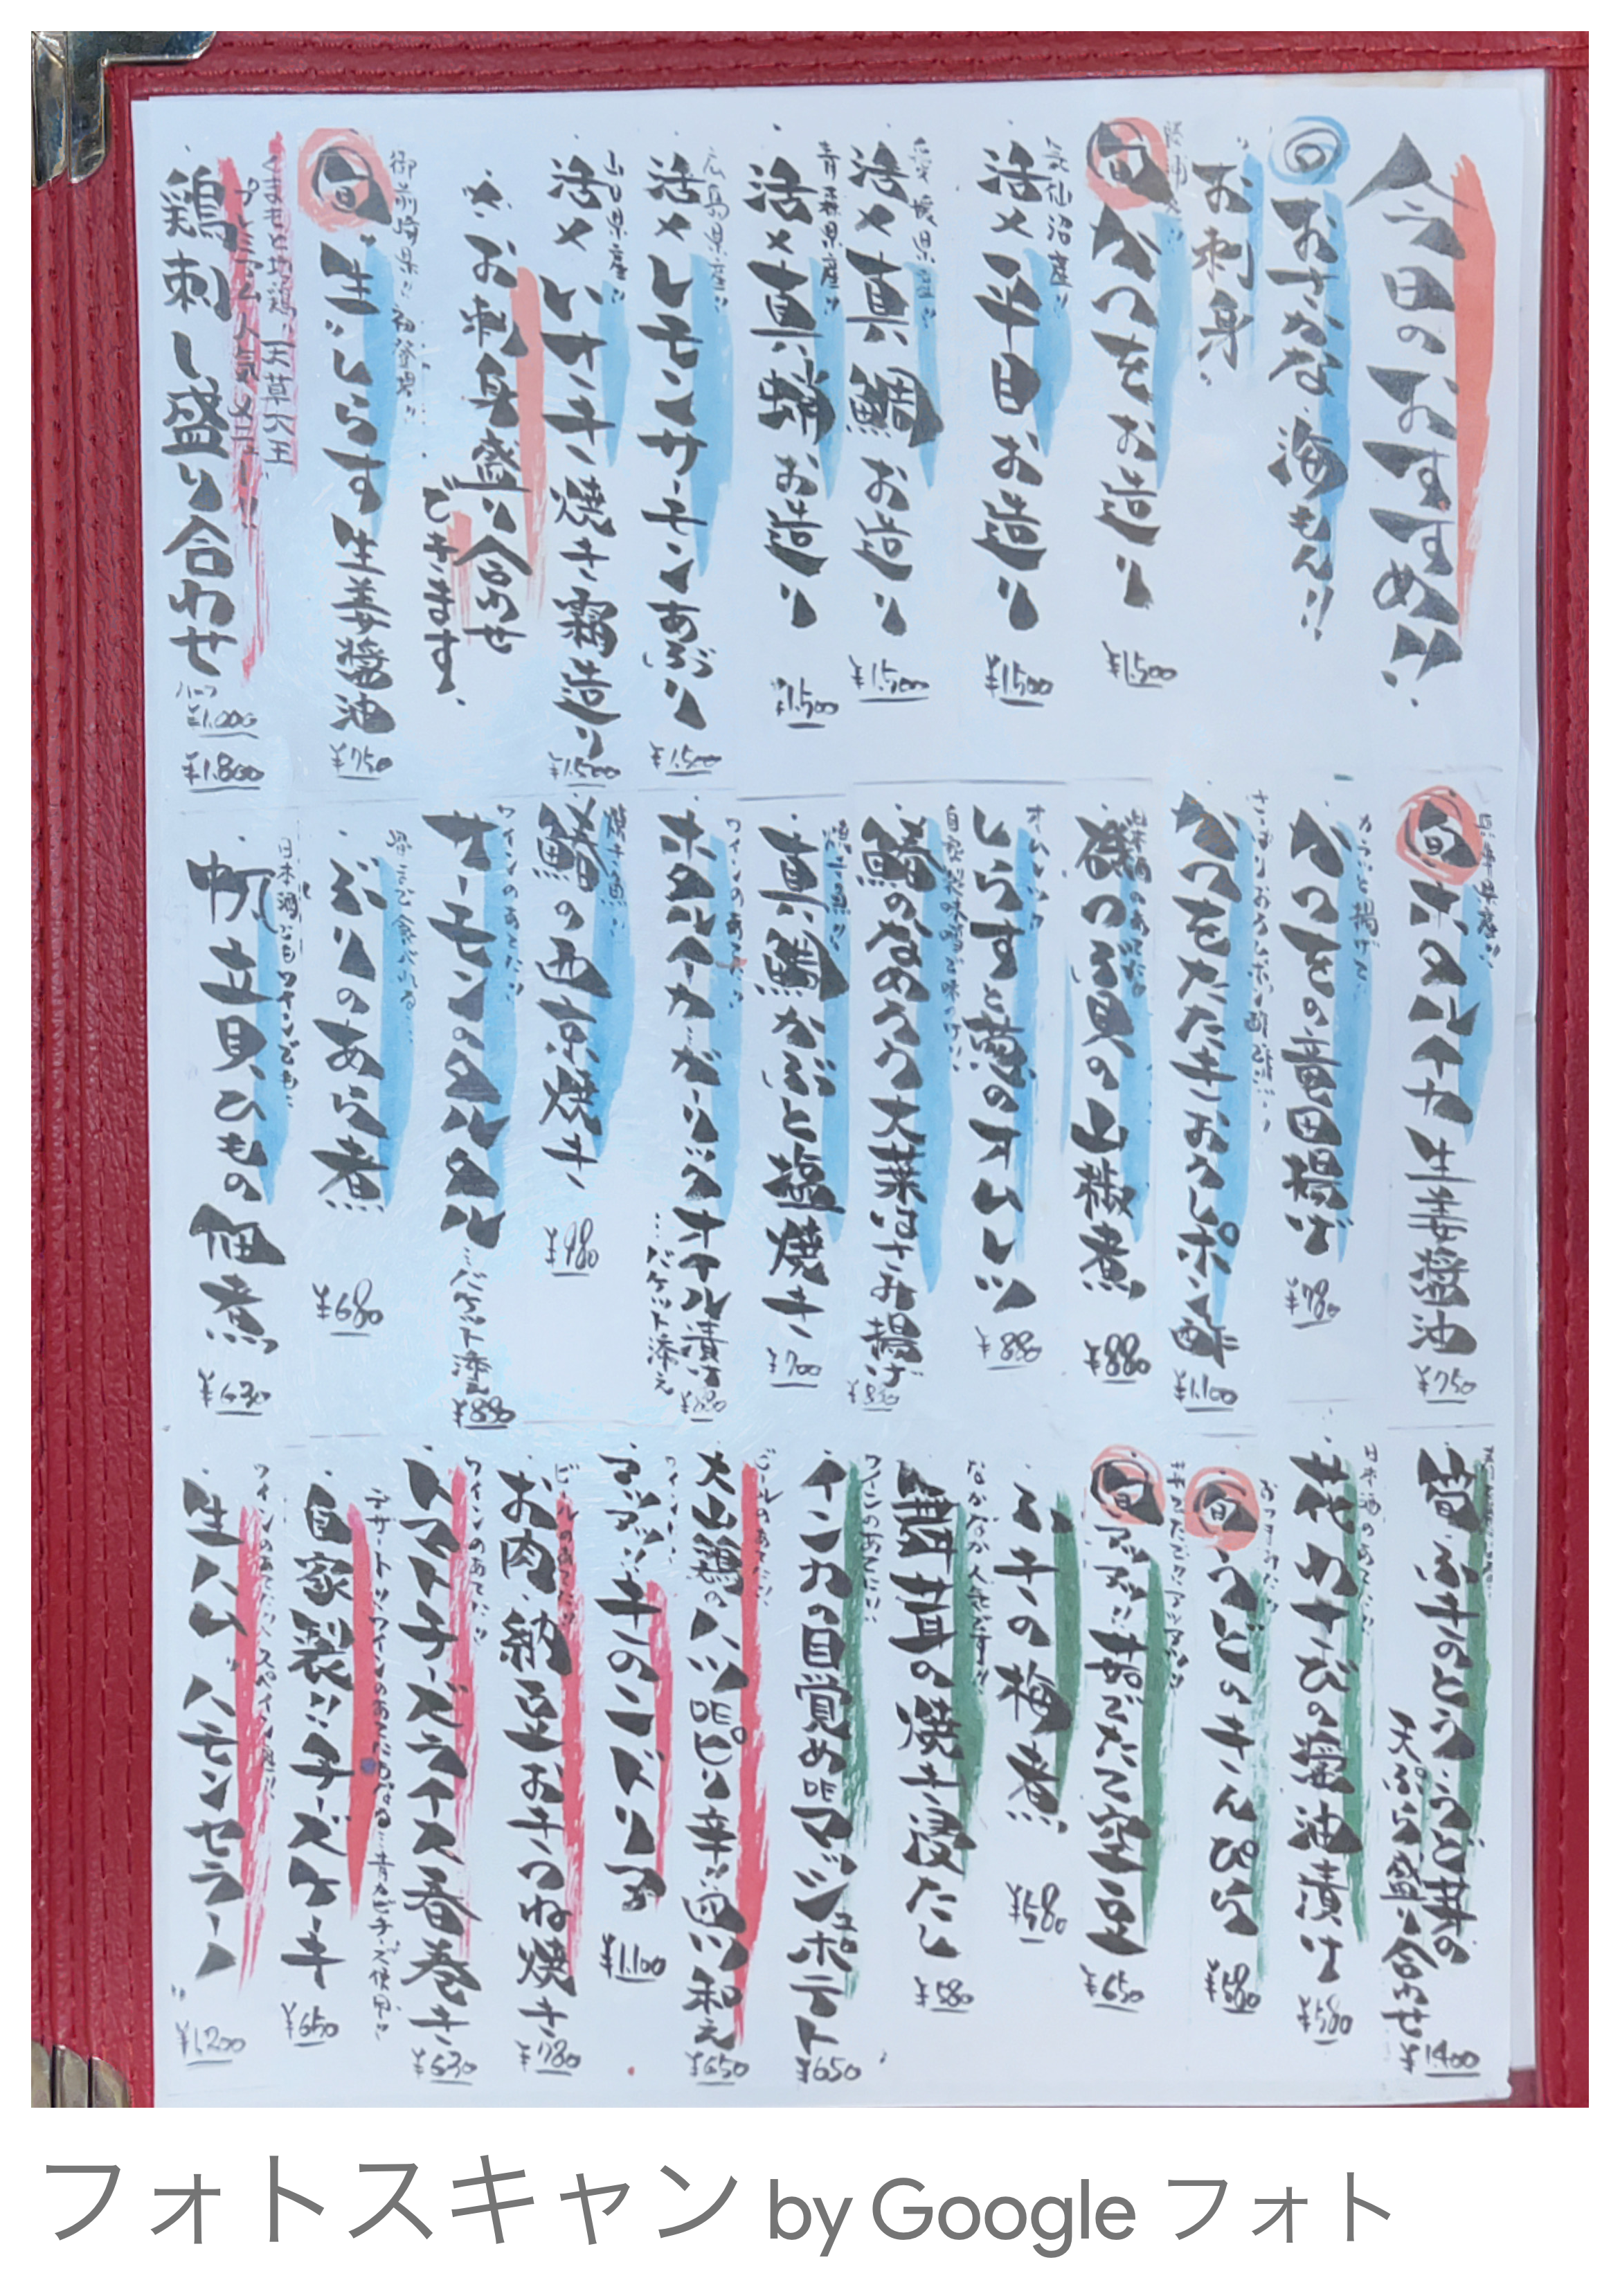 今日のおすすめ!!
のおさかな 海もん!!
お刺身
旬 かつをお造り
¥1,500
気仙沼産!!
活〆平目お造り
¥1,500
愛媛県産!!
活〆真鯛お造り
¥1,500
青森県産!!
活〆真蛸お造り
¥1,500
広島県産!!
活〆レモンサーモンあぶり
¥1,500
山口県産!!
活〆いサキ焼き霜造り
¥1,500
お刺身盛り合わせ
できます。
御前崎県!! 初登場!!
旬 生しらす生姜醤油
¥750
くまもと地鶏、天草大王
プレミアム人気メニュー!!
鶏刺し盛り合わせ
ハーフ
¥1,000
¥1,800
旬 ホタルイカ生姜醤油
¥750
カラッと揚げて
かつをの竜田揚げ
¥780
かつをたたきおろしポン酢
¥1,100
日本酒のあてに
磯つぶ貝の山椒煮
¥880
しらすと葱のオムレツ
¥880
鯵のなめろう大葉はさみ揚げ
焼き魚!!
真鯛かぶと塩焼き
¥700
ワインのあてに!!
ホタルイカガーリックオイル漬け
…バケット添え
焼き魚!!
鰆の西京焼き
¥980
ワインのあてに!!
サーモンのタルタル
…バケット添え
¥880
骨まで食べれる…
ぶりのあら煮
¥680
日本酒にもワインでも!!
帆立貝ひもの佃煮
¥630
筍・ふきのとう・うど芽の
天ぷら盛り合わせ
¥1400
日本酒のあてに!!
花わさびの醤油漬け
¥580
旬 うどのきんぴら
¥580
旬 アツアツ!!茹でたて空豆
¥650
ふきの梅煮
¥580
なかなか人気です!!
舞茸の焼き浸たし
¥580
ワインのあてに!!
インカの自覚めdeマッシュポテト
¥650
ビールのあてに!!
大山鶏のハツdeピリ辛!!ユッケ和え
¥650
アツアツ!!
¥1,100
ビールのあてに!!
お肉、納豆おきつね焼き
¥780
ワインのあてに!!
トマトチーズライス春巻き
¥630
自家製!!チーズケーキ
¥650
生ハム、ハモンセラーノ
¥1,200
フォトスキャン by Google フォト